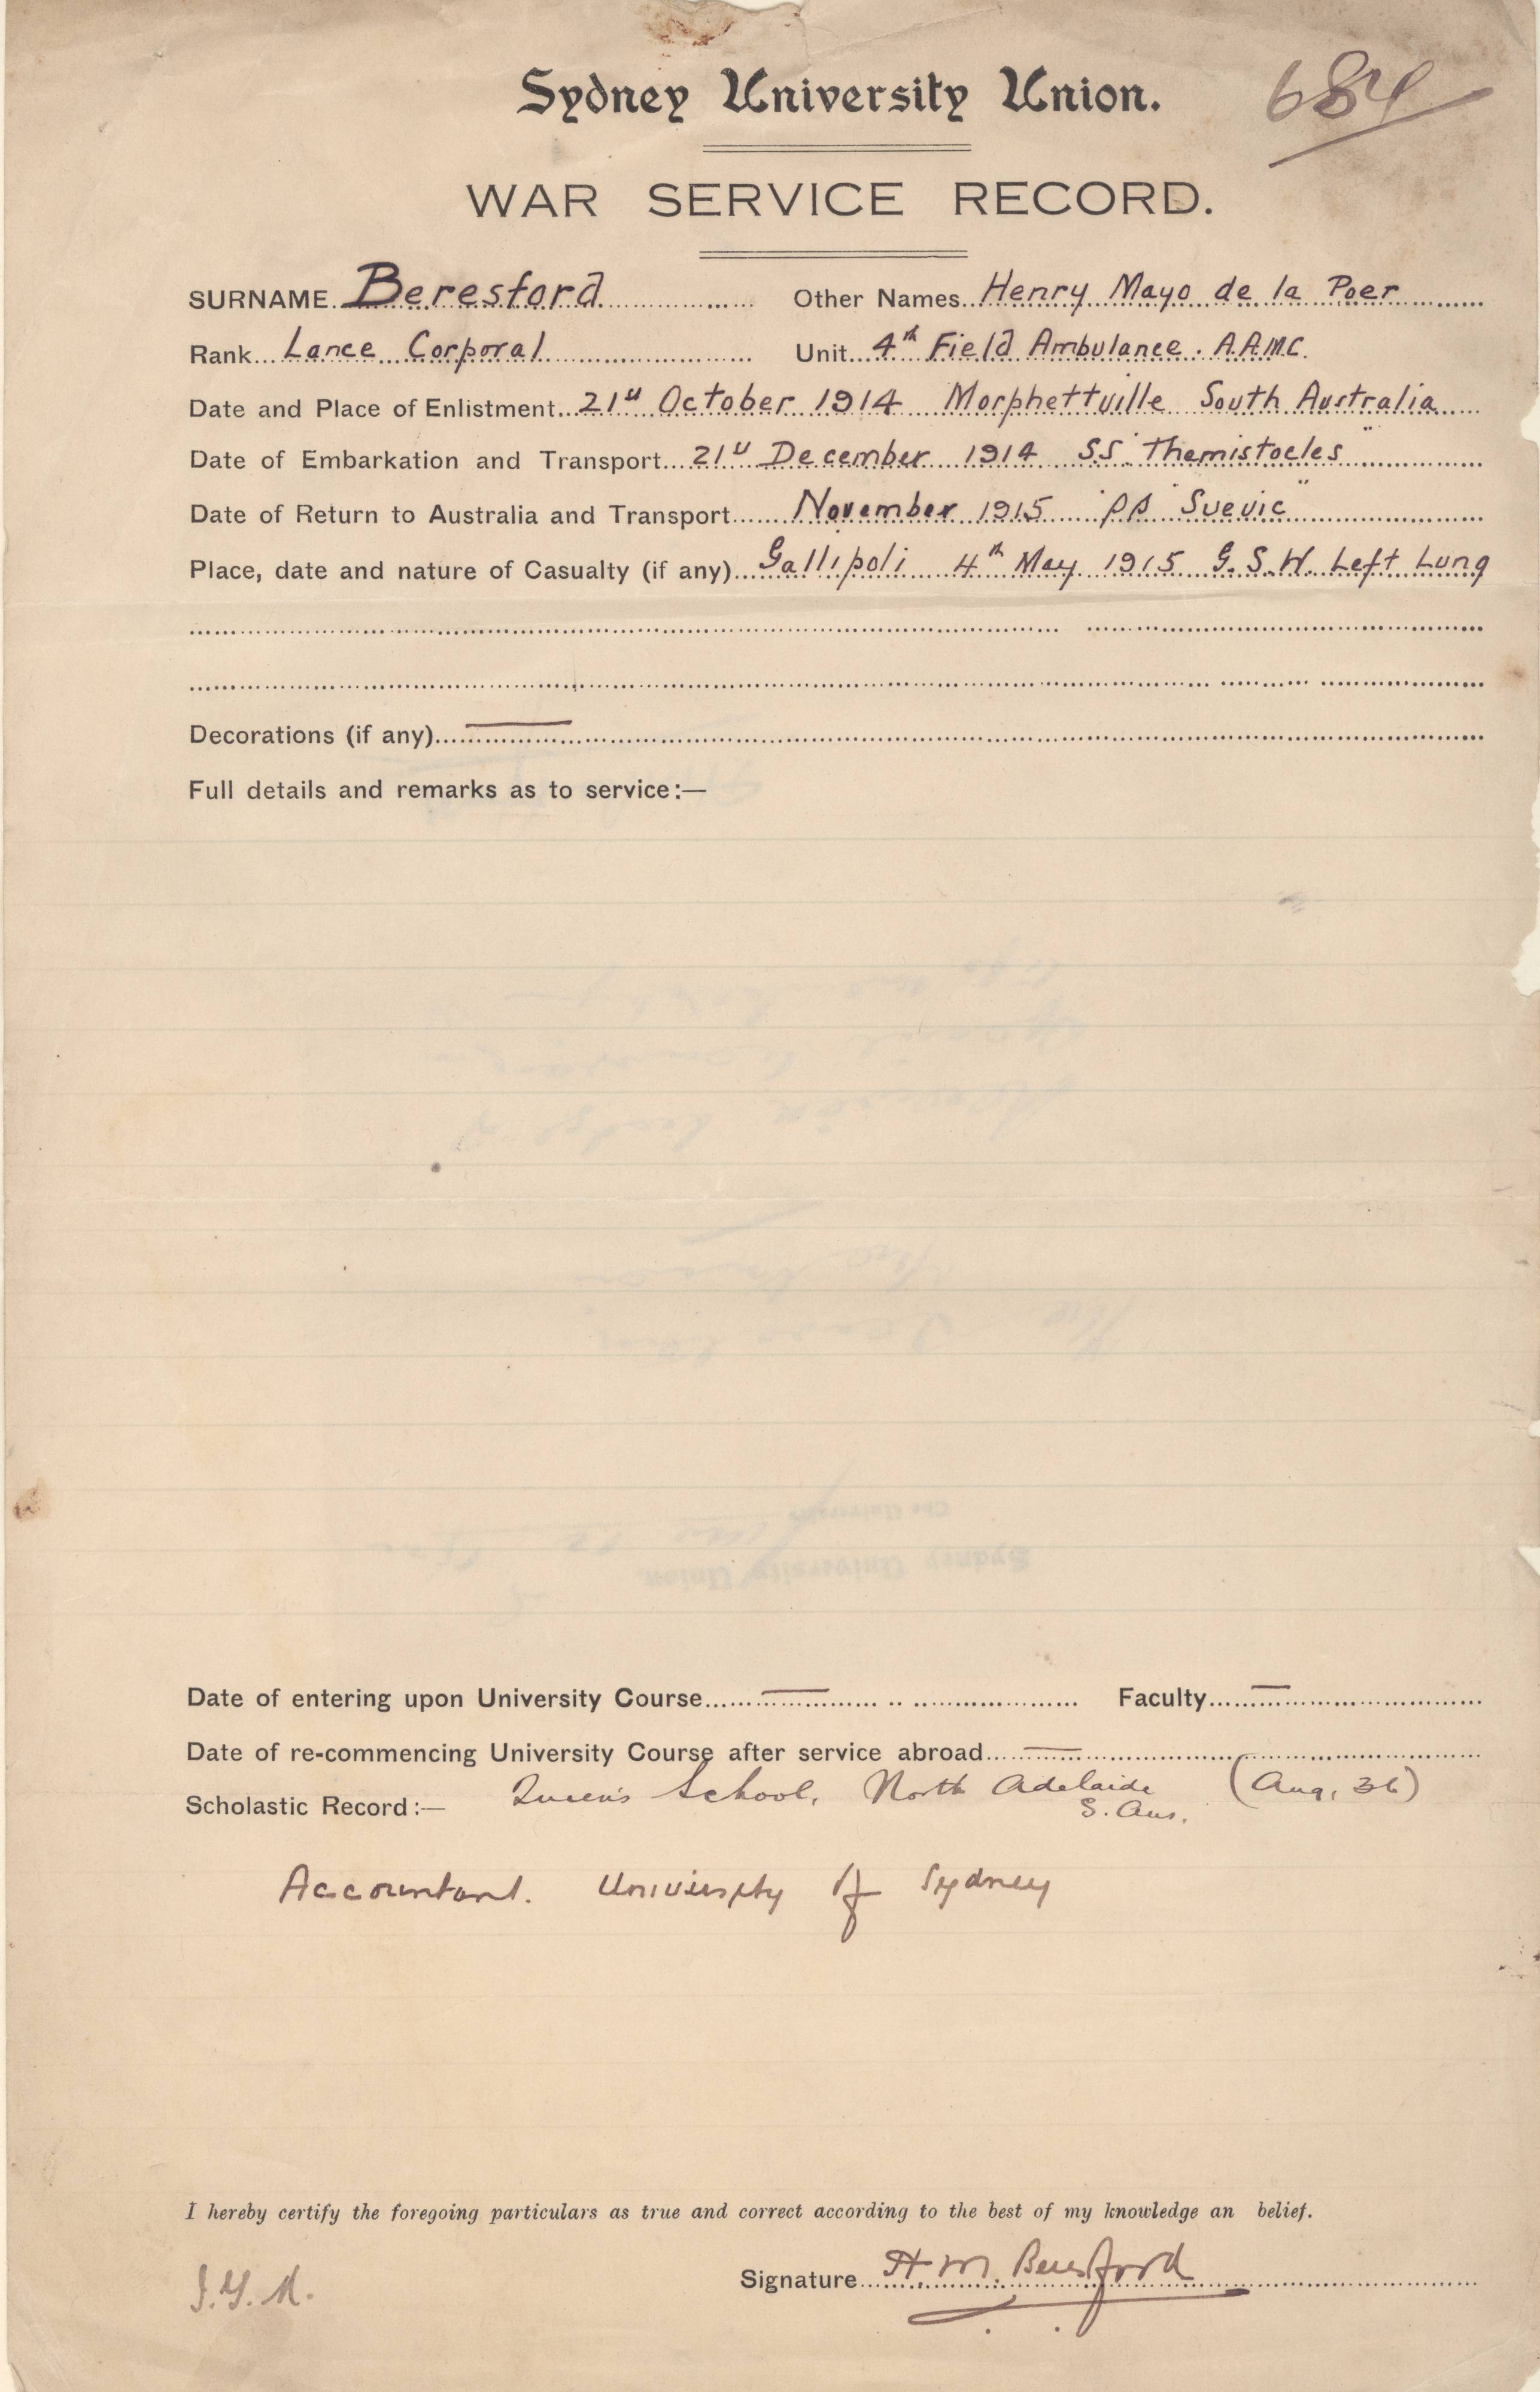 Sydney University Union.
684
WAR SERVICE RECORD.
SURNAME Beresford Other Names Henry Mayo de la Poer
Rank Lance Corporal Unit 4th Field Ambulance. A.A.M.C.
Date and Place of Enlistment 21st October 1914 Morphettville South Australia
Date of Embarkation and Transport 21st December 1914 S.S. "Themistocles"
Date of Return to Australia and Transport November 1915 SS "Suevic"
Place, date and nature of Casualty (if any) Gallipoli 4th May 1915 G.S.W. Left Lung
Decorations (if any) —
Full details and remarks as to service:—
Date of entering upon University Course — Faculty —
Date of re-commencing University Course after service abroad —
Scholastic Record:— Queen's School, North Adelaide (Aug, 36)
S. Aus.
Accountant. University of Sydney
I hereby certify the foregoing particulars as true and correct according to the best of my knowledge an belief.
Signature H. M. Beresford